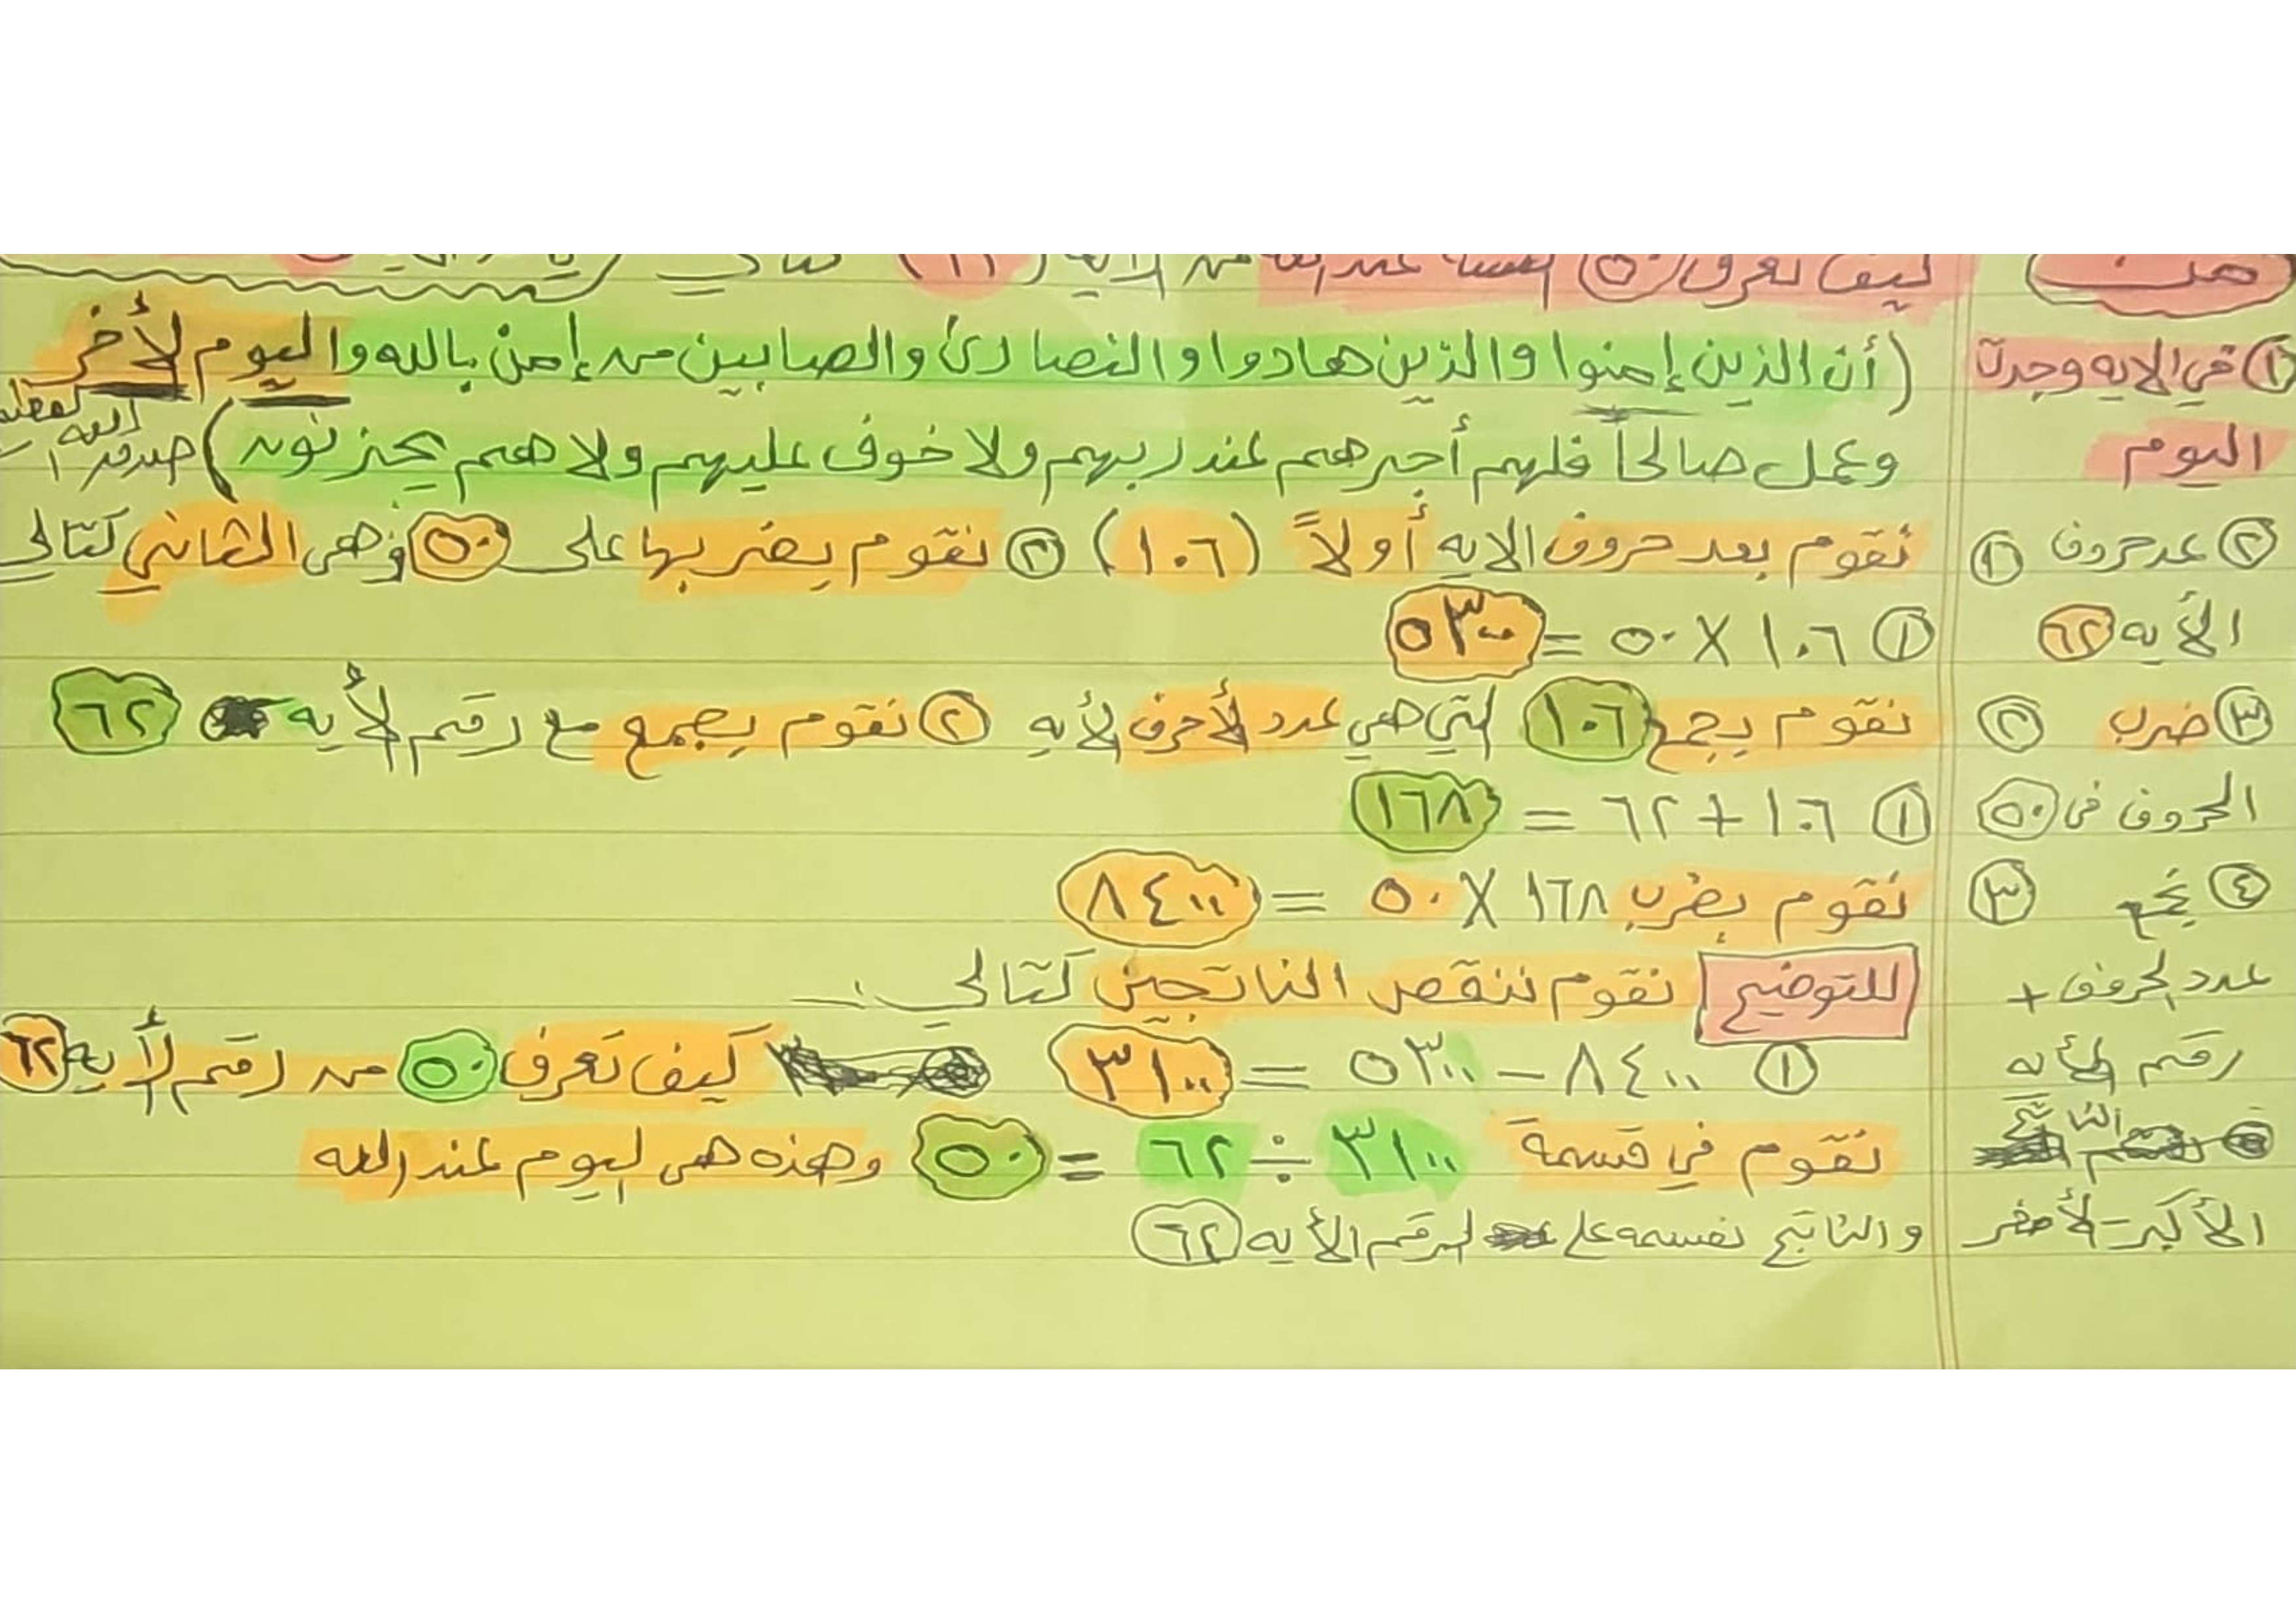 كيف نعرف ٥٠
① في الايه وجدت (أن الذين إمنوا والذين هادوا والنصارى والصابين من إمن بالله واليوم لأخر
اليوم وعمل صالحاً فلهم أجرهم عند ربهم ولا خوف عليهم ولا هم يحزنون) صدق الله
② عد حروف ① نقوم بعد حروف الايه أولاً (١٠٦) ② نقوم بضربها على ٥٠ وهي الثاني كتالي
الأيه ٦٢ ① ١٠٦ X ٥٠ = ٥٣٠٠
③ ضرب ② نقوم بجمع ١٠٦ التي هي عدد لأحرف لأيه ② نقوم بجمع مع رقم لأيه ٦٢
الحروف في ٥٠ ① ١٠٦ + ٦٢ = ١٦٨
④ نجمع ③ نقوم بضرب ١٦٨ X ٥٠ = ٨٤٠٠
عدد لحروف + للتوضيح نقوم ننقص الناتجين كتالي :ـ
رقم لأيه ① ٨٤٠٠ − ٥٣٠٠ = ٣١٠٠ كيف نعرف ٥٠ من رقم لأيه ٦٢
الناتج نقوم في قسمة ٣١٠٠ ÷ ٦٢ = ٥٠ وهذه هي ليوم عند الله
الأكبر − لأصغر والناتج نقسمه على لرقم الأيه ٦٢